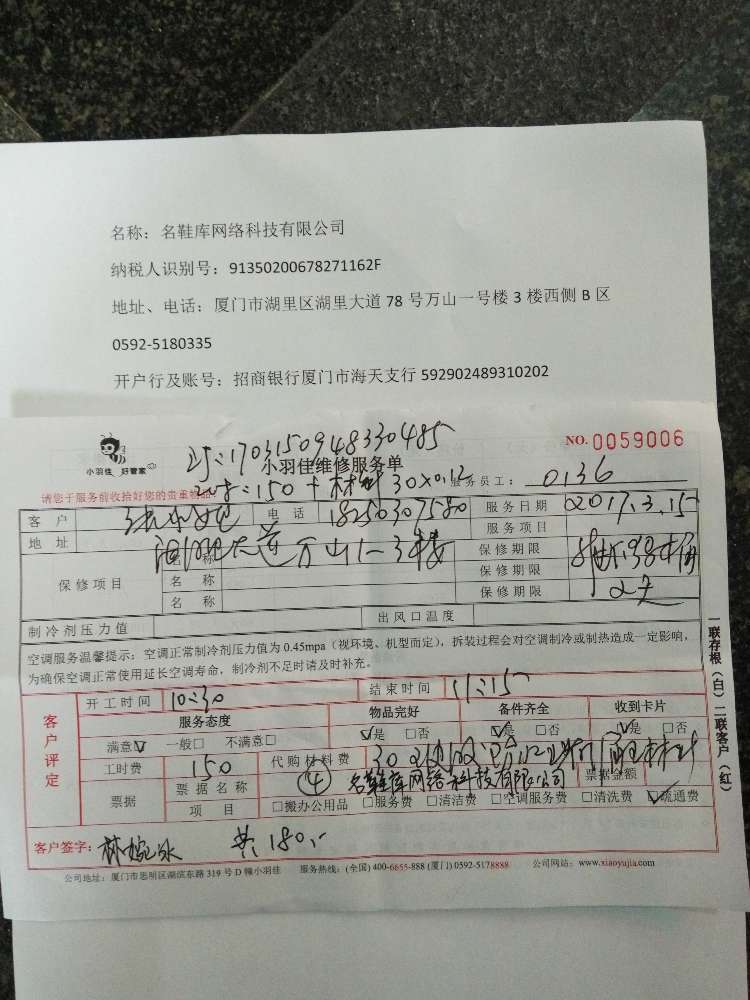 名称：名鞋库网络科技有限公司
纳税人识别号：91350200678271162F
地址、电话：厦门市湖里区湖里大道 78 号万山一号楼 3 楼西侧 B 区
0592-5180335
开户行及账号：招商银行厦门市海天支行 592902489310202
小羽佳 好管家
1703150948330485
NO. 0059006
小羽佳维修服务单
150 + 材料 30 x 0.12
服务员工： 0136
请您于服务前收拾好您的贵重物品
客 户 电 话 18250307580 服务日期 2017.3.15
地 址 湖里大道万山1-3楼 服务项目
保修项目 名 称 保修期限
名 称 保修期限
名 称 保修期限 2天
制冷剂压力值 出风口温度
空调服务温馨提示：空调正常制冷剂压力值为 0.45mpa（视环境、机型而定），拆装过程会对空调制冷或制热造成一定影响，
为确保空调正常使用延长空调寿命，制冷剂不足时请及时补充。
一联存根（白）二联客户（红）
客户评定
开工时间 10:30 结束时间 11:15
服务态度 物品完好 备件齐全 收到卡片
满意☑ 一般□ 不满意□ ☑是 □否 ☑是 □否 ☑是 □否
工时费 150 代购材料费 30
票据 票据名称 ④ 名鞋库网络科技有限公司 票据金额
项 目 □搬办公用品 □服务费 □清洁费 □空调服务费 □清洗费 ☑疏通费
客户签字： 共180.-
公司地址：厦门市思明区湖滨东路 319 号 D 幢小羽佳 服务热线：(全国) 400-6655-888 (厦门) 0592-5178888 公司网站：www.xiaoyujia.com